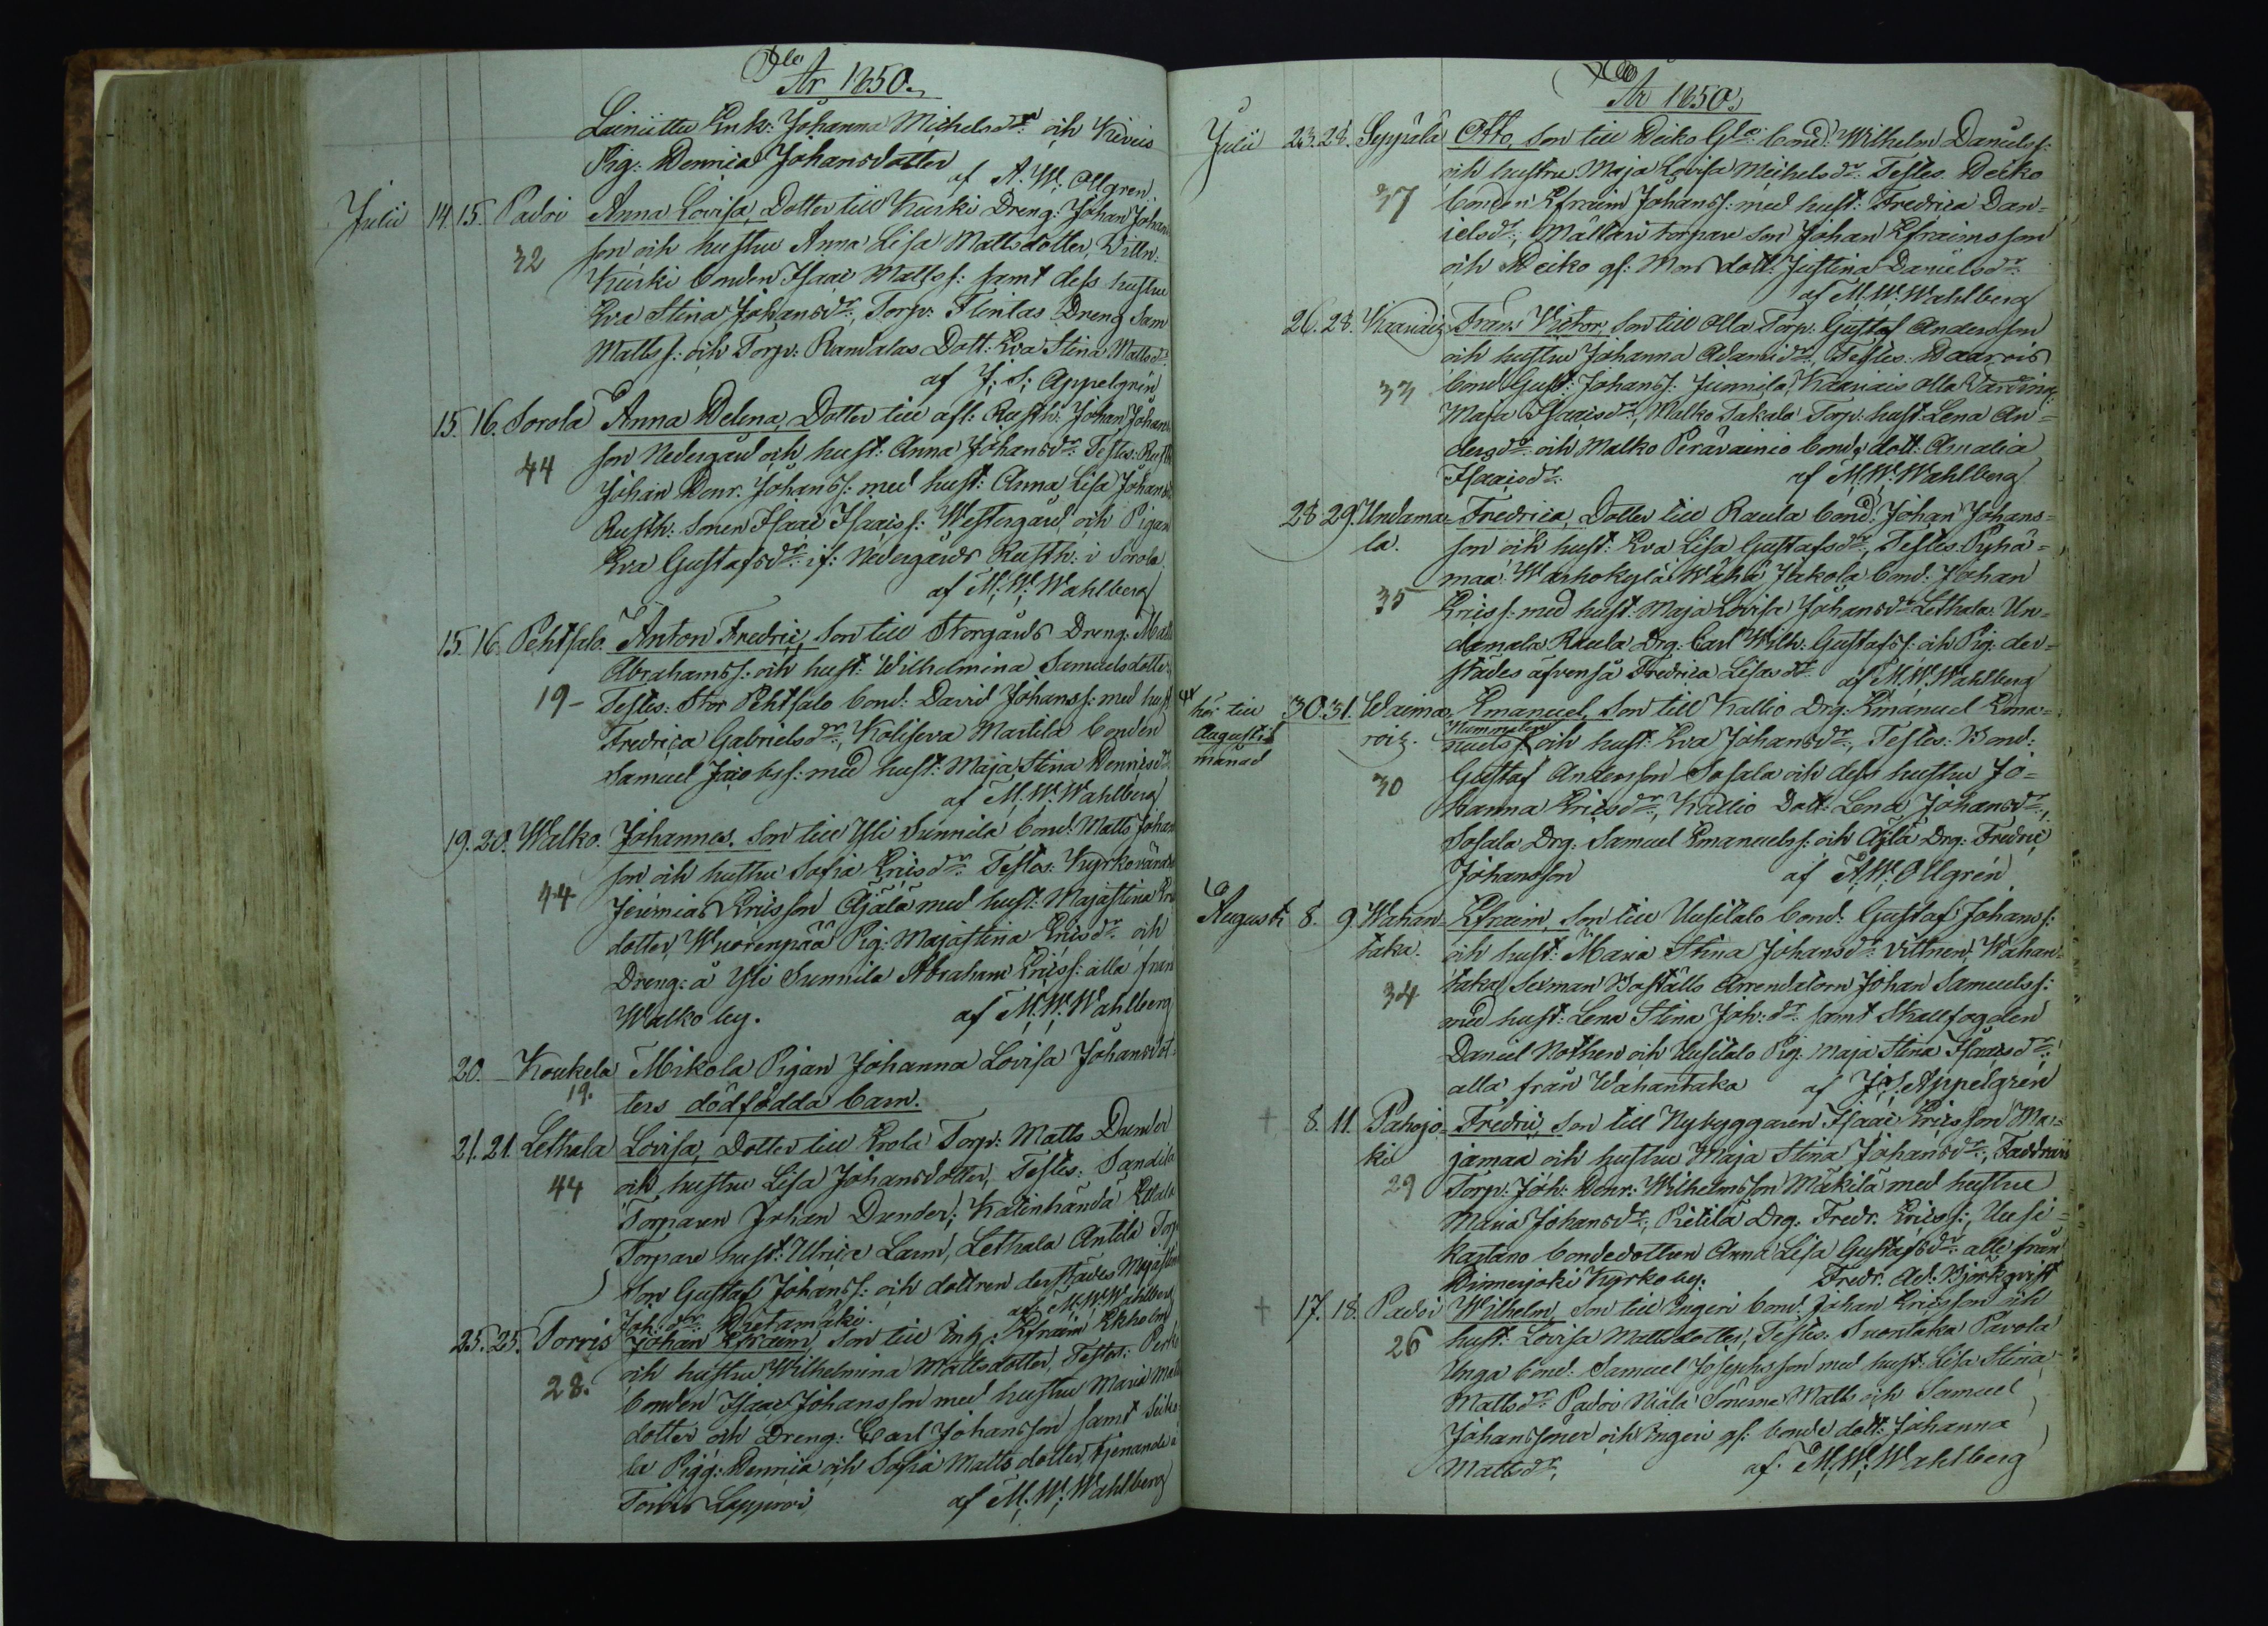 År 1850.
Leiniittu Enk: Johanna Michelsdr och
Pig: Henrica Johansdotter
af A. W. Ollgren.
Julii 14. 15. Padri Anna Lovisa, Dotter till Kurki Dreng: Johan Johans
32 son och hustru Anna Lisa Mattsdotter, Vittn:
Kurki bonden Isaac Matts s: samt dess hustru
Eva Stina Johansdr, Torp: Flinkas Dreng Sam
Matts s: och Torp: Randalas Dott: Eva Stina Mattsdr
af J: S: Appelgrén
15. 16. Sorola Anna Helena, Dotter till afl: Rusth: Johan Johans
44 son Nedergård och hust: Anna Johansdr. Testes: Rusth
Johan Henr. Johans s: med hust: Anna Lisa Johansdr
Rusth: Sonen Isaac Isaacs s: Westergård, och Pigan
Eva Gustafsdr if: Nedergårds Rusth: i Sorola
af M: W: Wahlberg
15. 16. Pehtsalo. Anton Fredric, Son till Storgårds Dreng: Matts
Abrahams s: och hust: Wilhelmina Samuelsdotter,
19 - Testes: Stor Pehtsalo bond: David Johans s: med hust
Fredrica Gabrielsdr, Koliseva Marttila bonden
Samuel Jacobs s: med hust: Maja Stina Henricsdr
af M. W. Wahlberg
19. 20. Walko. Johannes. Son till Yli Sunnila bond: Matts Johans
son och hustru Sofia Ericsdr. Testes: Kyrkovärd
44 Jeremias Ericsson Äjälä med hust: Majastina Erics
dotter, Wuorenpää Pig: Majastina Ericsdr och
Dreng: å Yli Sunnila Abraham Erics s: alla från
Walko by. af M. W. Wahlberg
20. - Koukela Mikola Pigan Johanna Lovisa Johansdot-
19. ters dödfödda barn.
21. 21. Lethala Lovisa, Dotter till Erola Torp: Matts Dunder
44 och hustru Lisa Johansdotter, Testes: Tandila
Torparen Johan Dunder; Katinhändä Eerola
Torpare hust: Ulrica Laurn, Lethala Antila Torp
Son Gustaf Johans s: och dottren derstädes Majastina
Joh: dr Hietamäki. af M. W. Wahlberg
25. 25. Torris Johan Efraim, Son till Inh: Efraim Ekholm
och hustru Wilhelmina Mattsdotter, Testes:
28. bonden Isaac Johansson med hustru Maria Matts
dotter och Dreng: Carl Johansson samt
la Pigg: Henrica och Sofia Mattsdotter, tjenande å
Torris Sepproi af M. W. Wahlberg
År 1850.
Julii 23. 24. Seppälä Otto, Son till Heiko Gla: bond: Wilhelm Daniels s:
och hustru Maja Lovisa Michelsdr. Testes Heiko
37 bonden Efraim Johans s: med hust: Fredrica Dan-
ielsdr; Mälläri torpare son Johan Efraimsson
och Heiko gf: Mors dott: Justina Danielsdr
af M. W. Wahlberg
26. 28. Kaariaiz Frans Victor, Son till Olla Torp: Gustaf Andersson
och hustru Johanna Adamsdr, Testes: Haarois
33 bond Gust: Johans s: Junnila, Kaariais Olla
Maja Isaacsdr, Malko Takala Torp: hust: Lena An-
dersdr och Malko Perävainio bonde dott: Amalia
Isaacsdr. af M. W. Wahlberg
28. 29. Undama- Fredrica, Dotter till Raula bond: Johan Johans-
la. son och hust: Eva Lisa Gustafsdr, Testes: Pyhä-
maa: Warhokylä Wähä Jaakola bond: Johan
35 Erics s: med hust: Maja Lovisa Johansdr Lethala: Un-
damala Raula Drg: Carl Wilh: Gustafs s: och Pig: der-
städes äfvenså Fredrica Lisasdr. af M. W. Wahlberg
hör till Augusti månad
30. 31. Waima- Emanuel, Son till Kallio Drg: Emanuel Ema-
roiz. nuels s och hust: Eva Johansdr, Testes: Bond:
30 Gustaf Andersson Sasala och dess hustru Jo-
hanna Ericsdr, Kallio Dott: Lena Johansdr,
Sasala Drg: Samuel Emanuels s: och Äjlä Drg: Fredric
Johansson af A. W. Ollgrén
Augusti 8. 9. Wahan- Efraim, Son till Uusitalo bond: Gustaf Johans s:
taka. och hust: Maria Stina Johansdr Vittnen: Wahan-
34 taka Sexman Boställs Arrendatorn Johan Samuels s:
med hust: Lena Stina Joh: dr samt Skallfogden
Daniel Nothen och Uusitalo Pig: Maja Stina Isaacsdr
alla från Wahantaka af J: S: Appelgrén
+ 8. 11. Pahojo- Fredric, Son till Nybyggaren Isaac Ericsson Ma-
ki jamaa och hustru Maja Stina Johansdr, Faddrar:
29 Torp: Joh: Henr: Wilhelmsson Mäkilä med hustru
Maria Johansdr; Pietilä Drg: Fredr. Erics s:, Uusi-
kartano bondedottren Anna Lisa Gustafsdr alle från
Hinnerjoki Kyrkoby. Fredr. Ad: Björkqvist
+ 17. 18. Padoi Wilhelm, Son till Ingeri bond: Johan Ericsson och
26 hust: Lovisa Mattsdotter, Testes: Suontaka Pavola
Unga bond: Samuel Josephsson med hust: Lisa Stina
Mattsdr Padoi Niälä Sönerne Matts och Samuel
Johanssöner och Ingeri gf: bonde dott: Johanna
Mattsdr, af M. W. Wahlberg